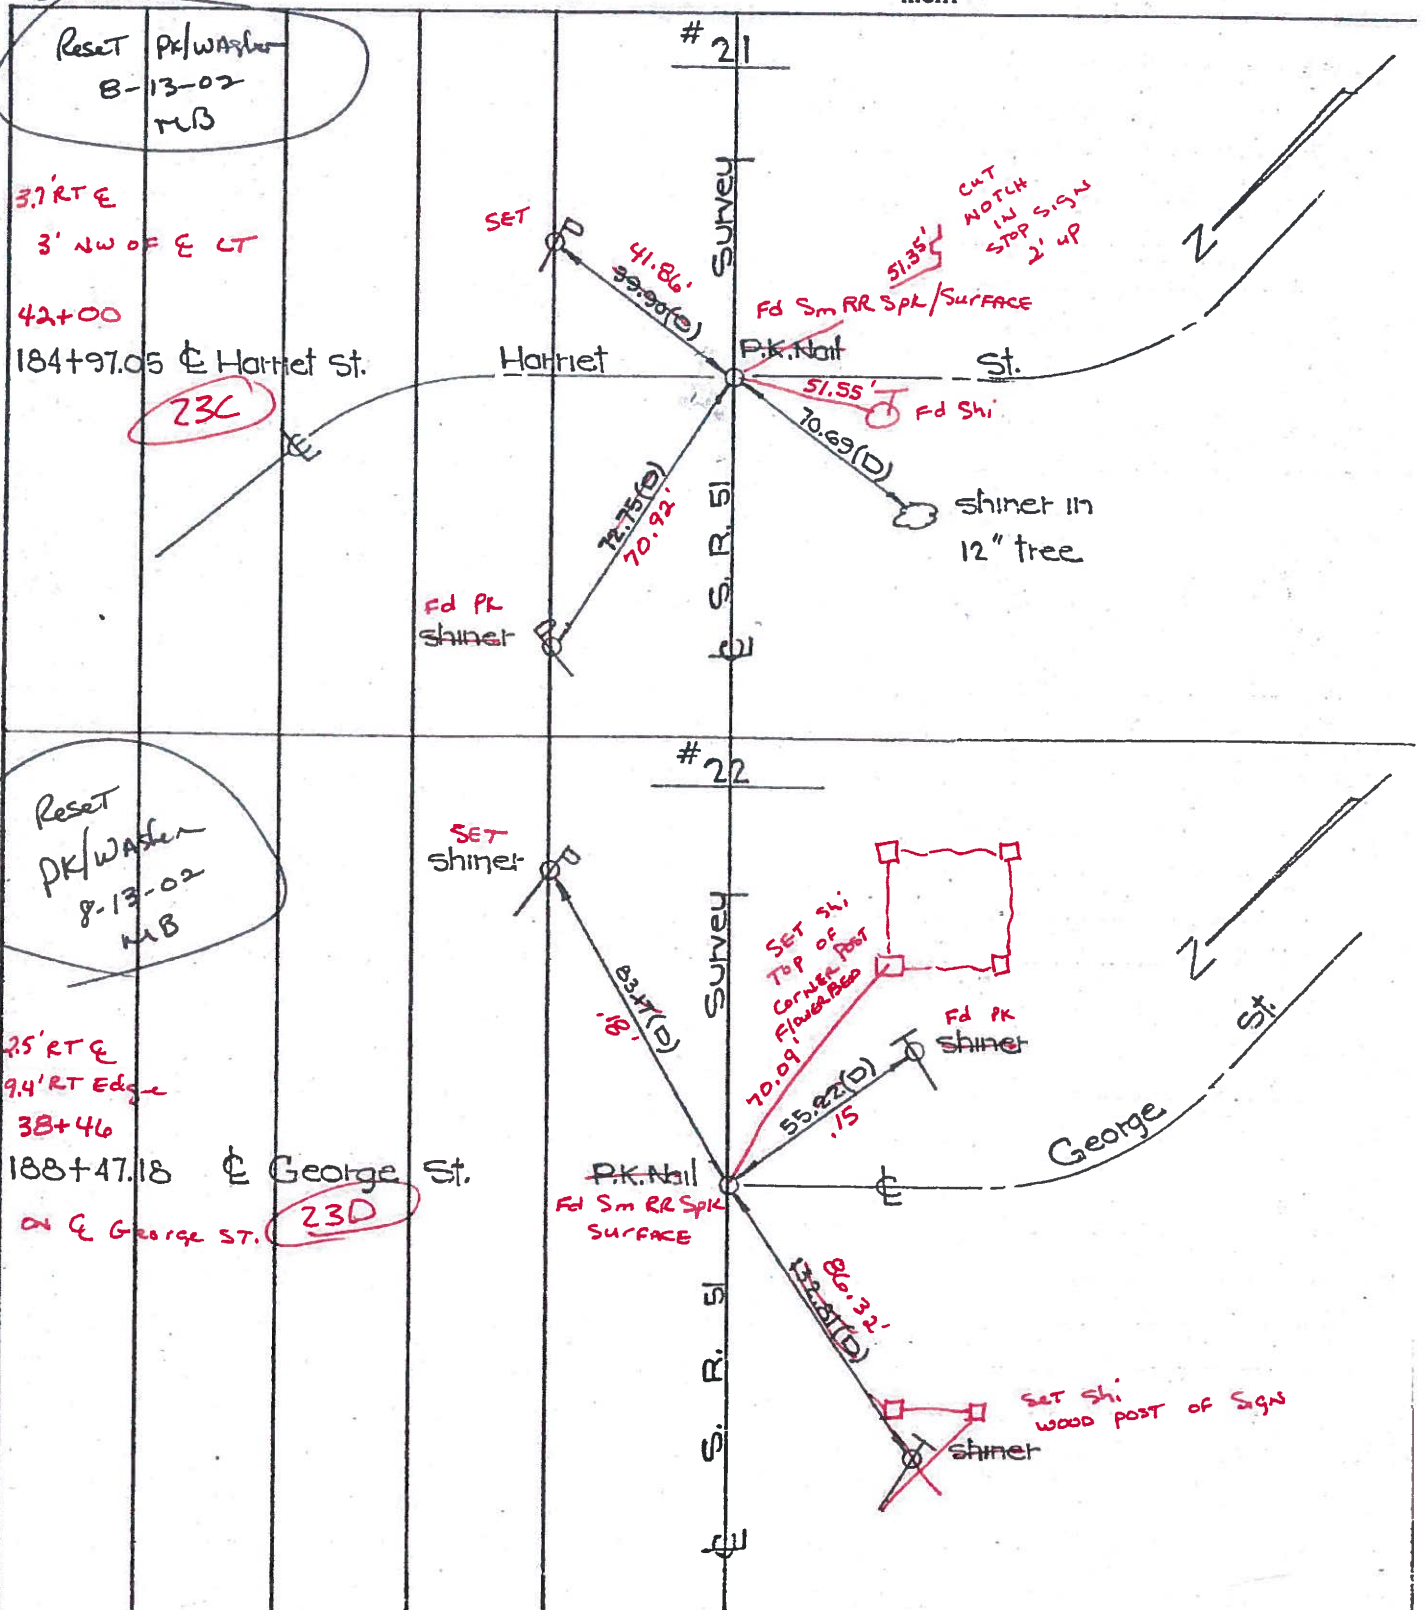 # 21
Reset PK/Washer
8-13-02
MB
3.7' RT ℄
3' NW OF ℄ LT
42+00
184+97.05 ℄ Harriet St.
23C
SET
41.86'
39.90(D)
Survey
CUT
NOTCH
IN
STOP SIGN
2' UP
51.35'
Fd Sm RR Spk/Surface
P.K.Nail
Harriet
St.
51.55'
Fd Shi
70.69(D)
shiner in
12" tree
72.75(D)
70.92'
Fd PK
shiner
℄
S. R. 51
℄
N
# 22
Reset
PK/Washer
8-13-02
MB
2.5' RT ℄
9.4' RT Edge
38+46
188+47.18 ℄ George St.
ON ℄ George ST.
23D
SET
shiner
83.17(D)
.18'
Survey
SET Shi
TOP OF
CORNER POST
FlowerBED
70.09'
Fd PK
shiner
55.22(D)
.15
N
George St.
℄
P.K.Nail
Fd Sm RR Spk
Surface
86.32'
132.81(D)
S. R. 51
℄
Set Shi
WOOD POST OF SIGN
shiner